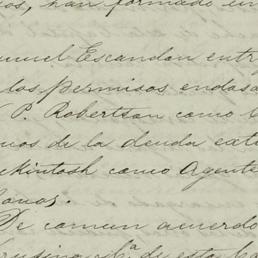 os, han formado en
anuel Escandon entr
los permisos endosa
P. Robertson como
nos de la deuda exte
ckintosh como Agente
onos.
De comun acuerdo